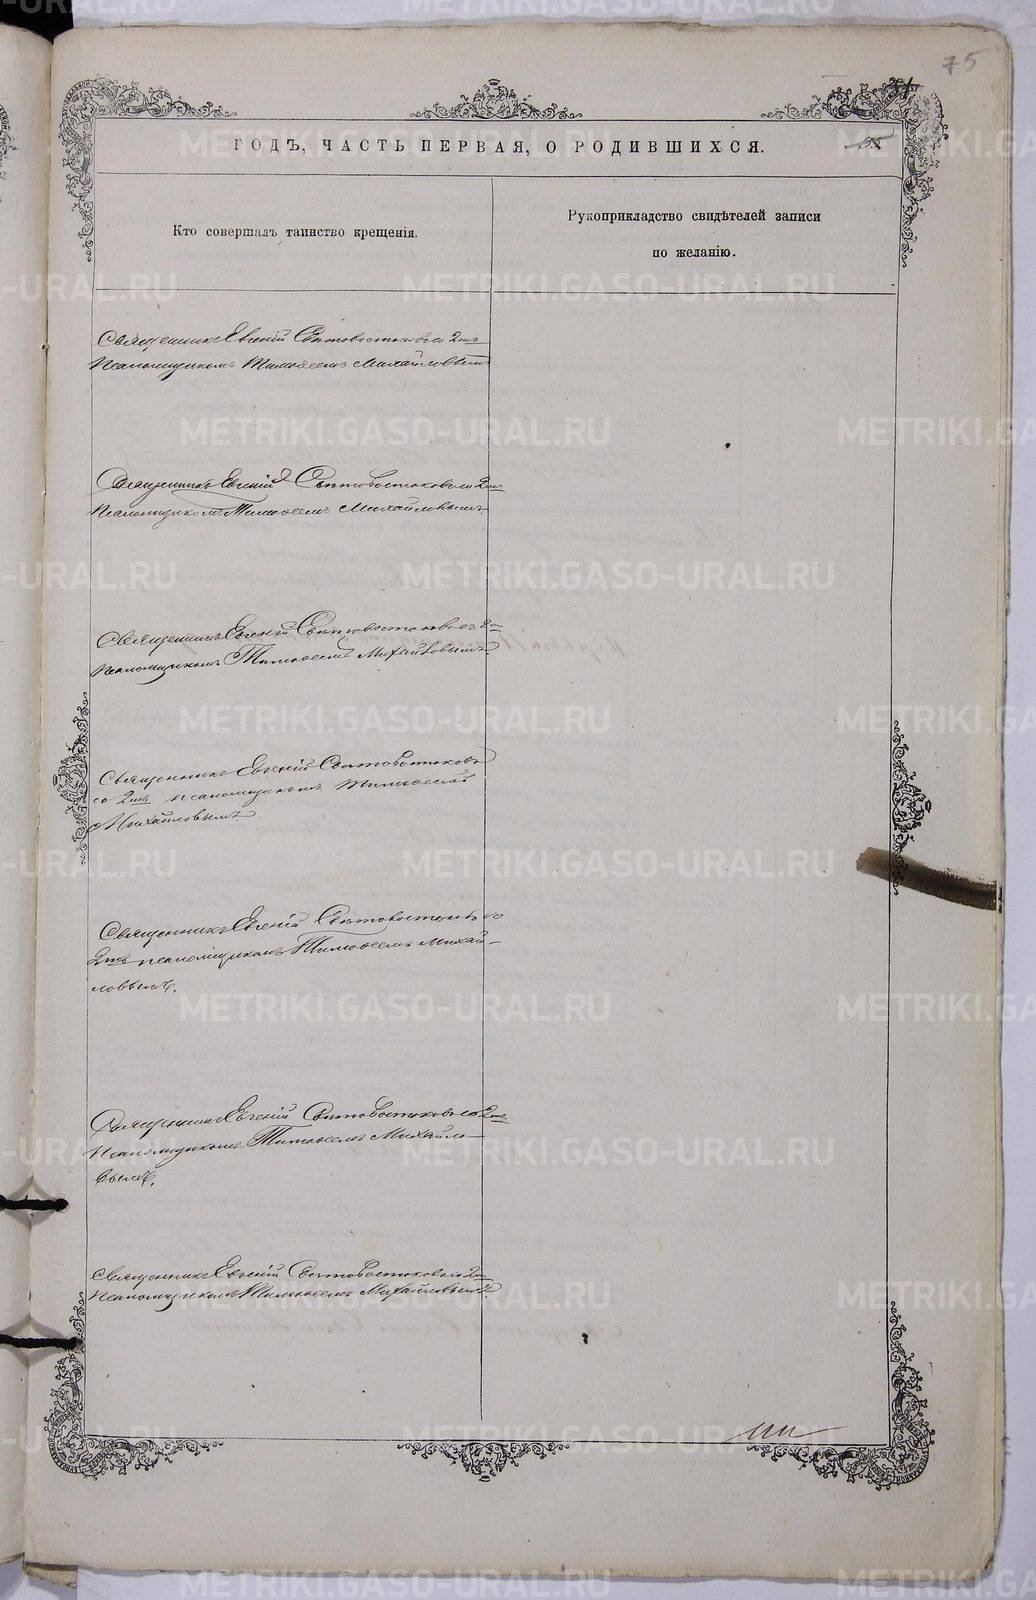 75
ГОДЪ, ЧАСТЬ ПЕРВАЯ, О РОДИВШИХСЯ.
Кто совершалъ таинство крещенія.
Рукоприкладство свидѣтелей записи
по желанію.
Священникъ Евгеній Свѣтовостоковъ съ 2мъ
псаломщикомъ Тимоѳеемъ Михайловымъ
Священникъ Евгеній Свѣтовостоковъ съ 2мъ
псаломщикомъ Тимоѳеемъ Михайловымъ.
Священникъ Евгеній Свѣтовостоковъ съ 2мъ
псаломщикомъ Тимоѳеемъ Михайловымъ.
Священникъ Евгеній Свѣтовостоковъ
со 2мъ псаломщикомъ Тимоѳеемъ
Михайловымъ.
Священникъ Евгеній Свѣтовостоковъ со
2мъ псаломщикомъ Тимоѳеемъ Михай-
ловымъ.
Священникъ Евгеній Свѣтовостоковъ со 2мъ
псаломщикомъ Тимоѳеемъ Михайло-
вымъ.
Священникъ Евгеній Свѣтовостоковъ съ 2мъ
псаломщикомъ Тимоѳеемъ Михайловымъ.
METRIKI.GASO-URAL.RU